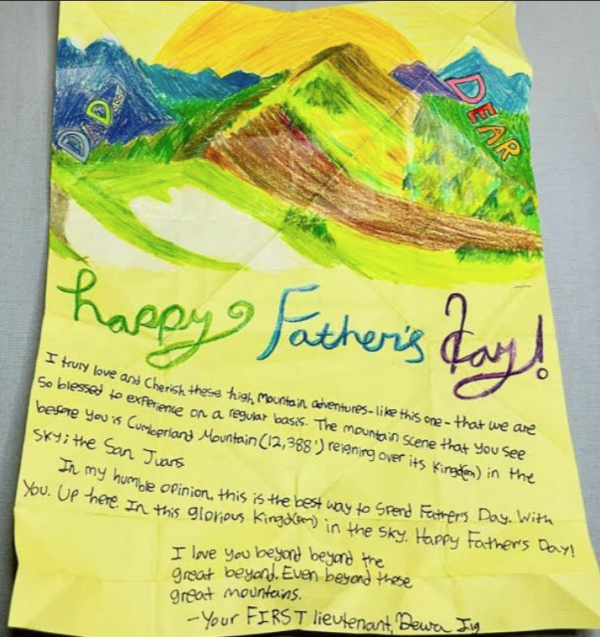 DEAR
DAD
happy Father's Day!
I truly love and Cherish these high Mountain adventures-like this one-that we are
So blessed to experience on a regular basis. The mountain scene that you see
before you is Cumberland Mountain (12,388') reigning over its Kingd(om) in the
Sky; the San Juans
In my humble opinion, this is the best way to Spend Father's Day. With
You. Up here. In this glorious Kingd(om) in the Sky. Happy Father's Day!
I love you beyond beyond the
great beyond. Even beyond these
great mountains.
-Your FIRST lieutenant,